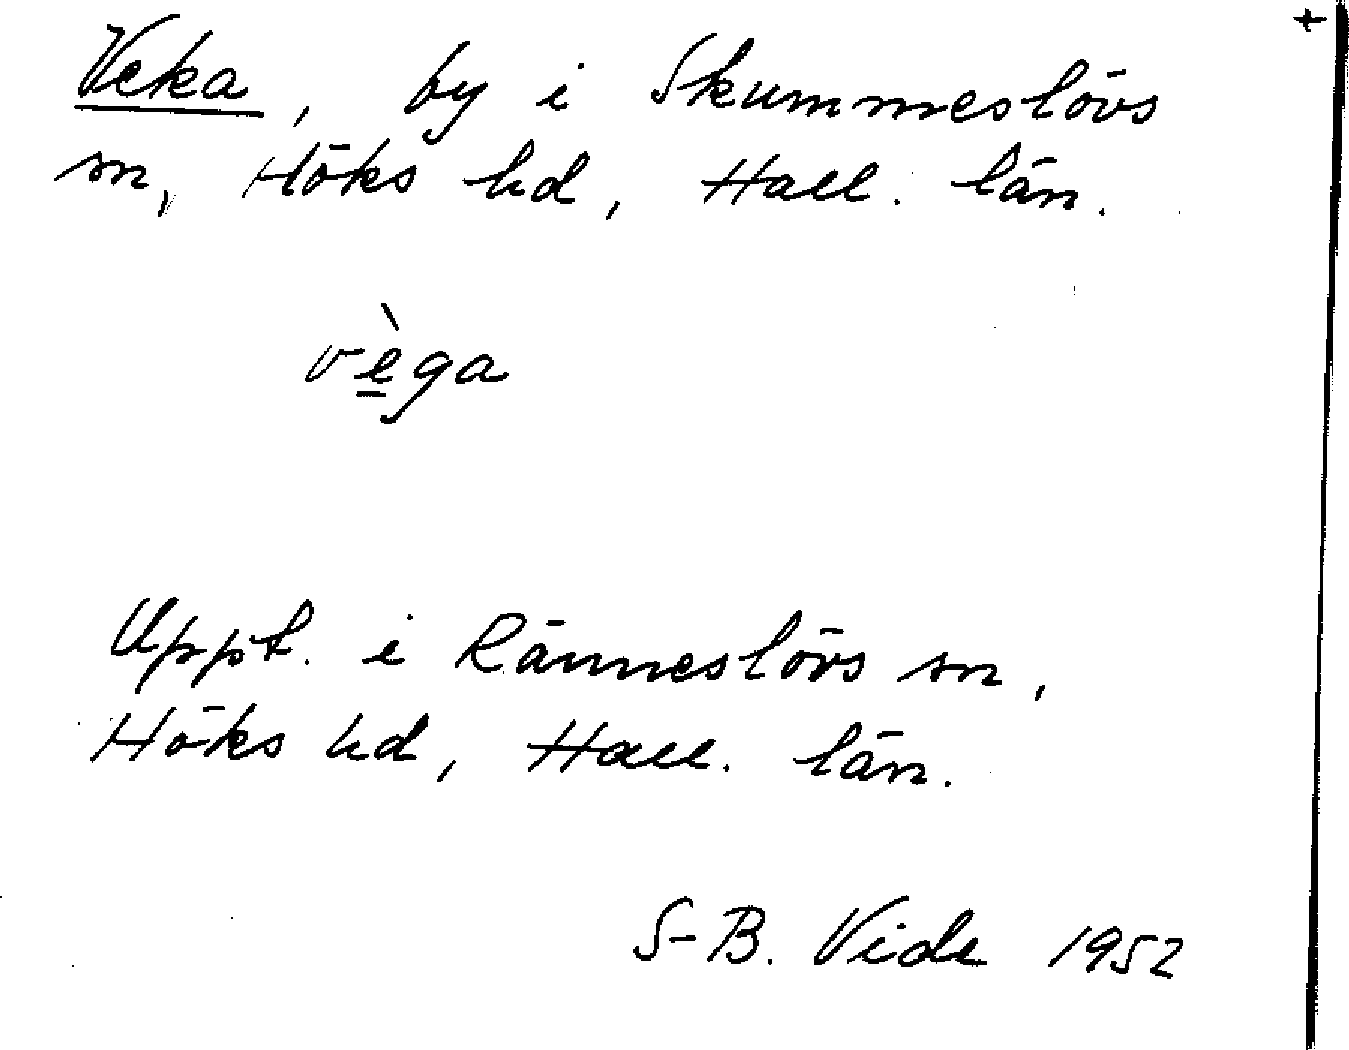 +
Veka, by i Skummeslövs
sn, Höks hd, Hall. län.
vè̱ga
Uppt. i Ränneslövs sn,
Höks hd, Hall. län.
S-B. Vide 1952